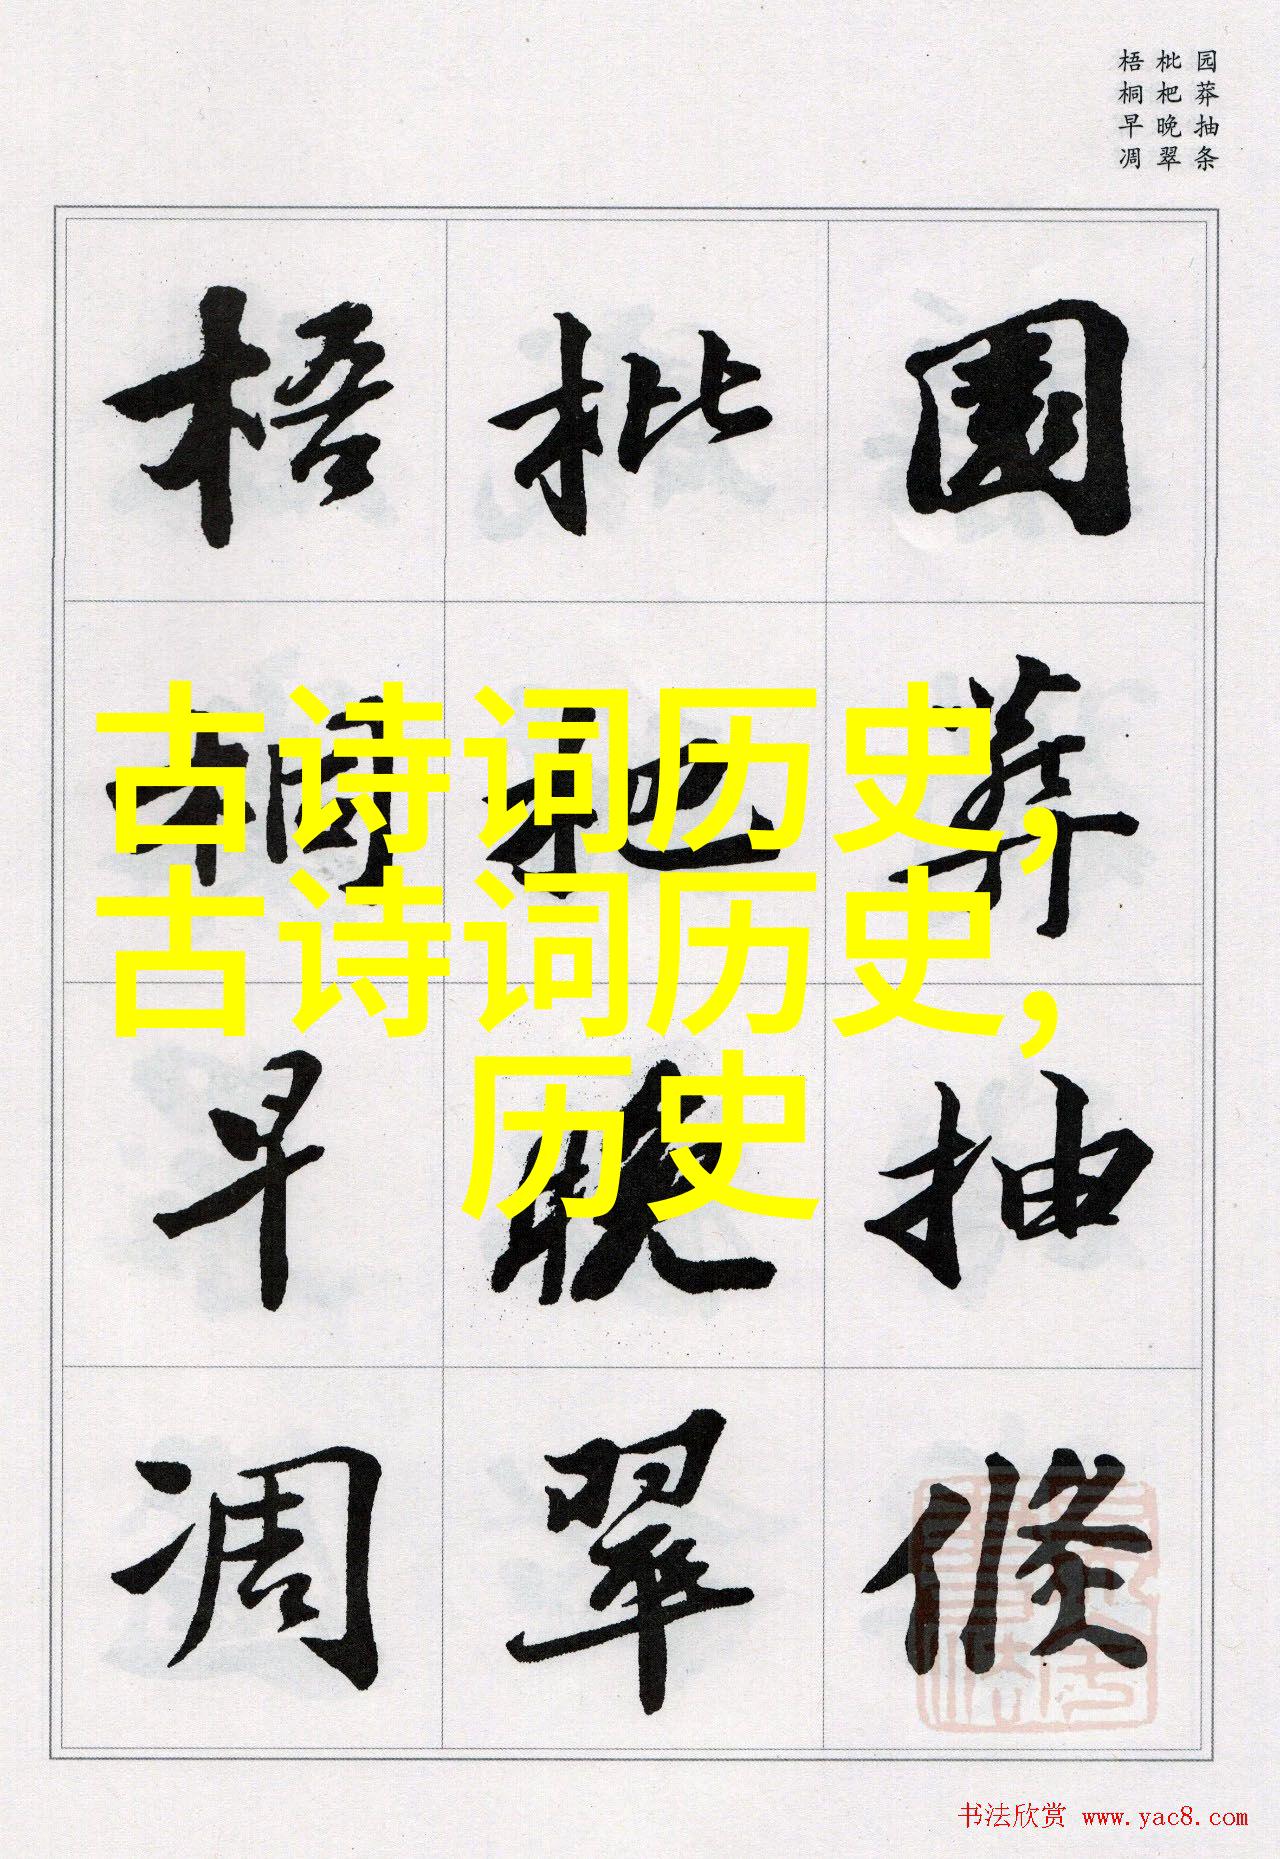 园莽抽条
枇杷晚翠
梧桐早凋
園莽抽條
枇杷晚翠
梧桐早凋
古诗词历史,
古诗词历史,
历史
书法欣赏 www.yac8.com